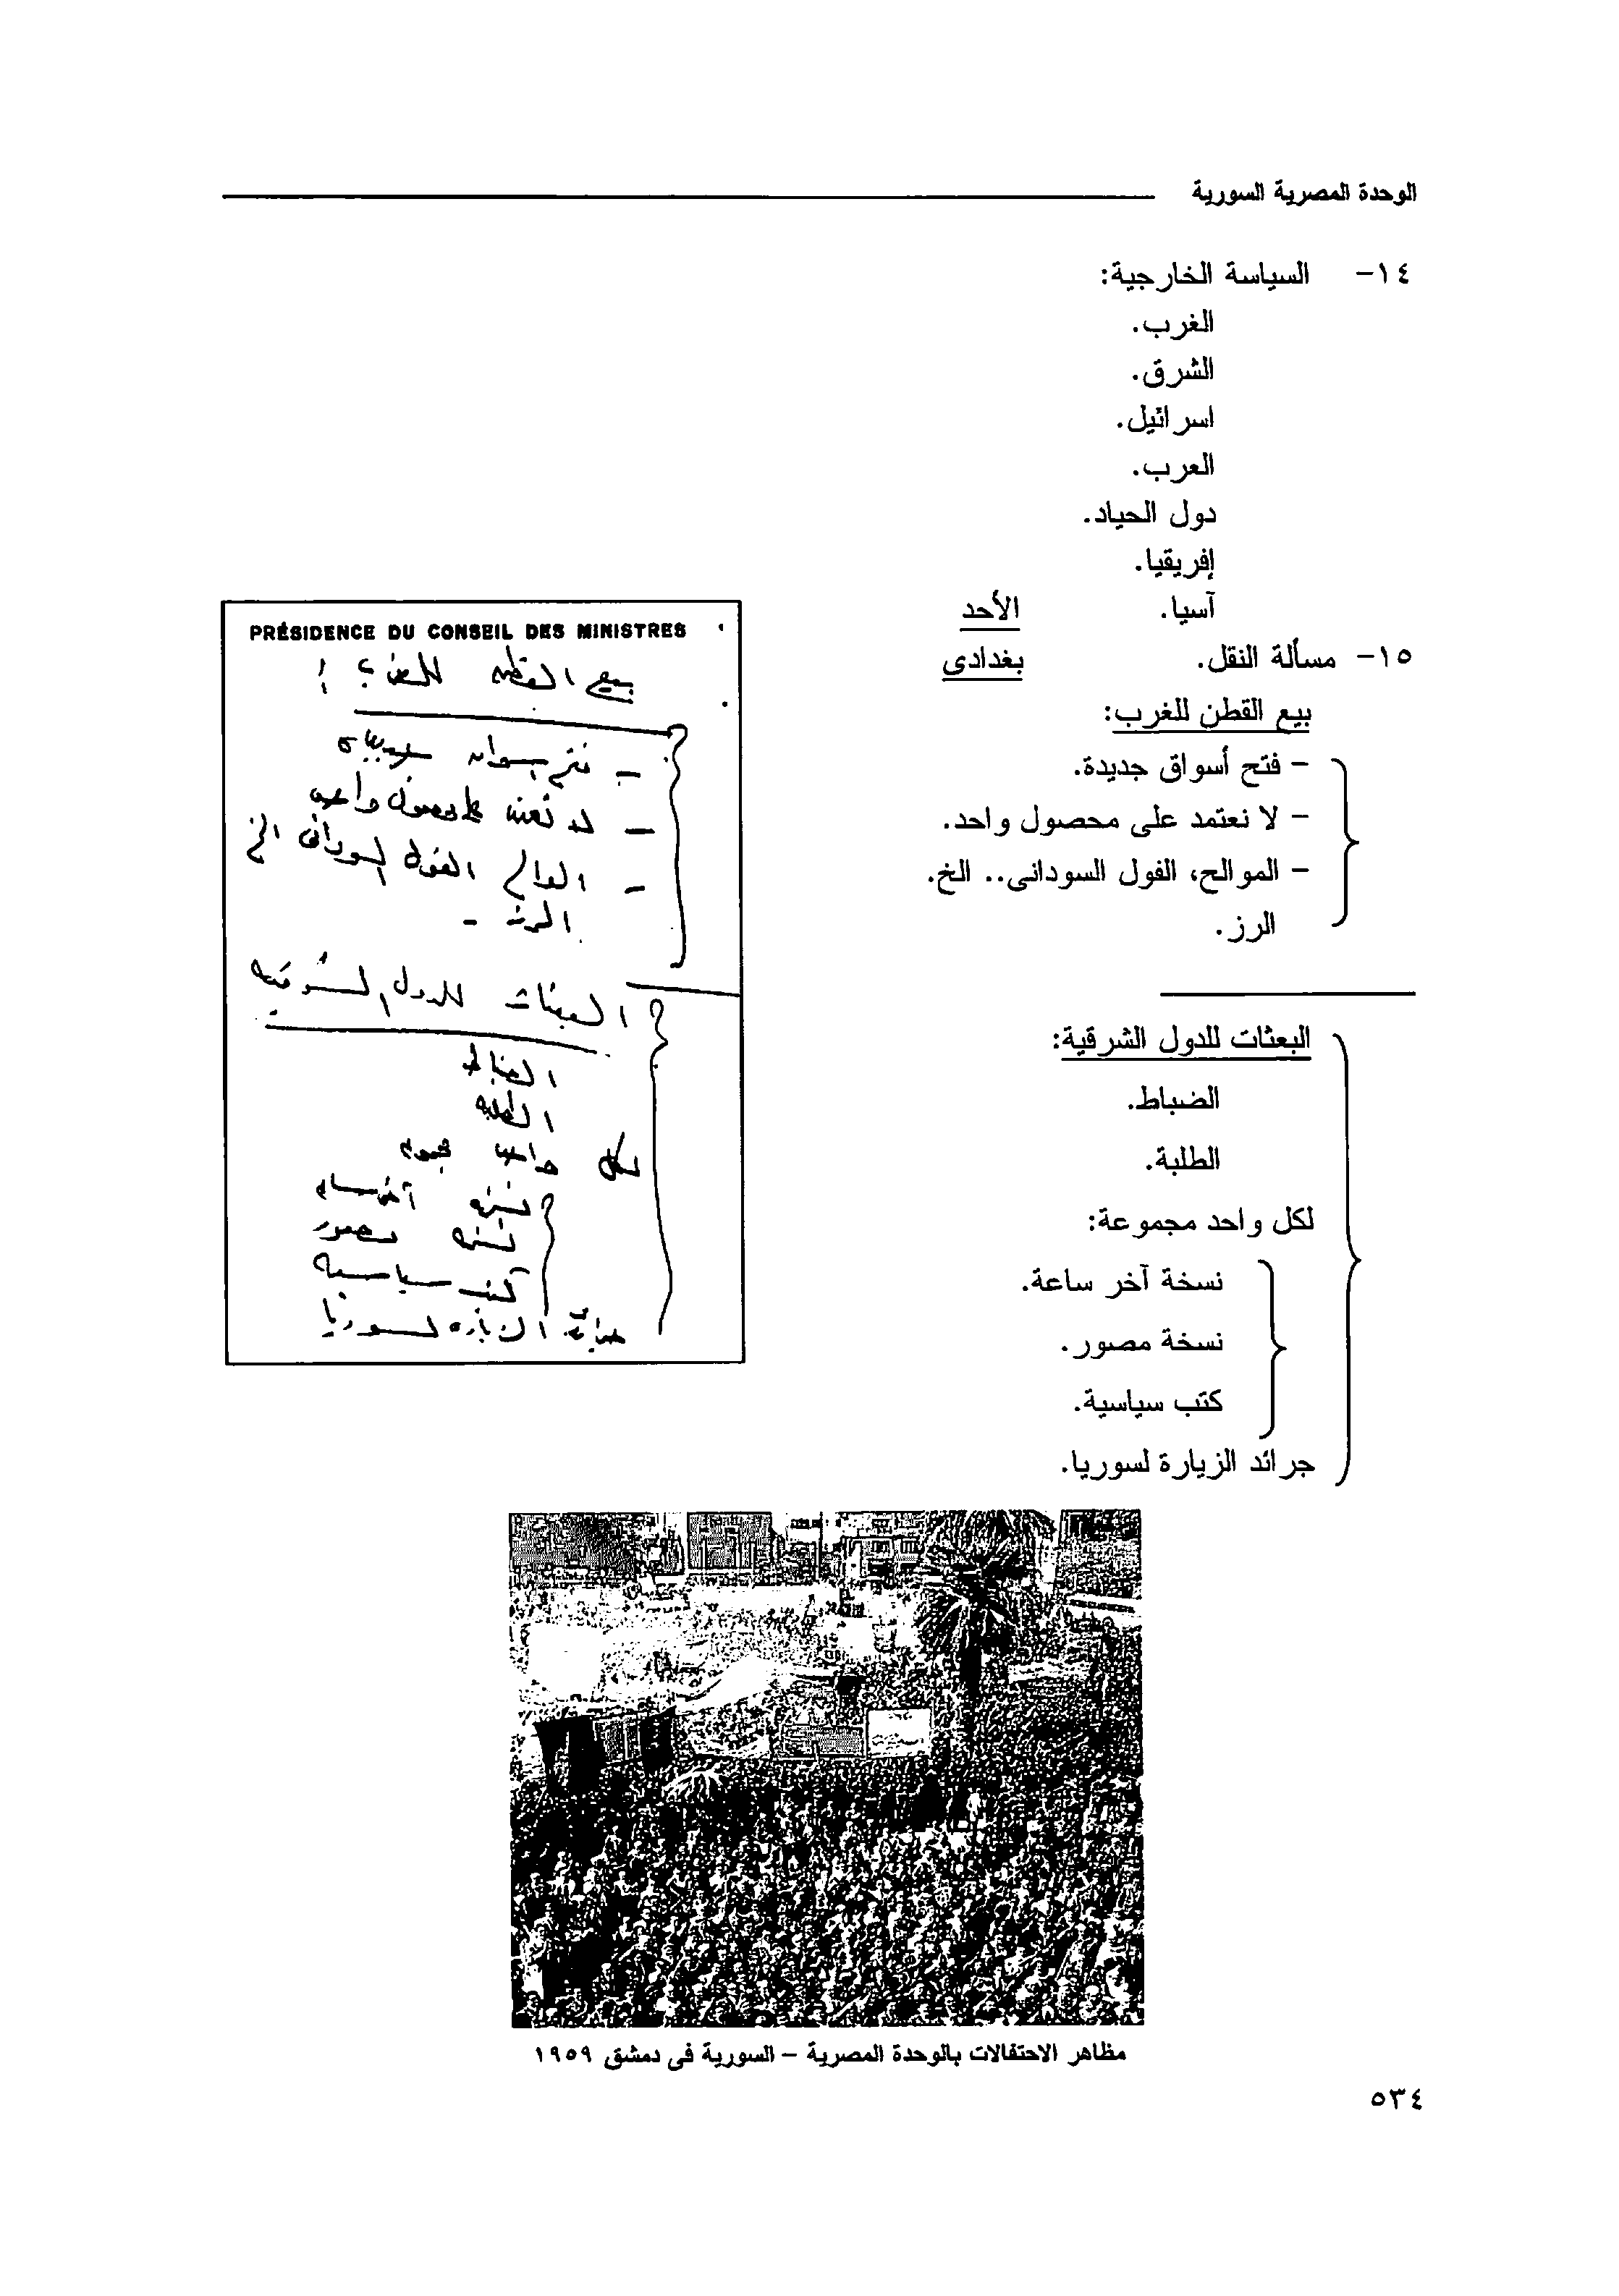 الوحدة المصرية السورية
١٤- السياسة الخارجية:
الغرب.
الشرق.
اسرائيل.
العرب.
دول الحياد.
إفريقيا.
آسيا. الأحد
١٥- مسألة النقل. بغدادى
بيع القطن للغرب:
- فتح أسواق جديدة.
- لا نعتمد على محصول واحد.
- الموالح، الفول السودانى.. الخ.
الرز.
البعثات للدول الشرقية:
الضباط.
الطلبة.
لكل واحد مجموعة:
نسخة آخر ساعة.
نسخة مصور.
كتب سياسية.
جرائد الزيارة لسوريا.
PRÉSIDENCE DU CONSEIL DES MINISTRES
بيع القطن للغرب :
- فتح اسواق جديده
- لا نعتمد على محصول واحد
- الموالح الفول السودانى الخ
الرز -
البعثات للدول الشرقيه
الضباط
الطلبه
لكل واحد مجموعه
نسخه آخر ساعه
نسخه مصور
كتب سياسيه
جرائد الزياره لسوريا
مظاهر الاحتفالات بالوحدة المصرية - السورية فى دمشق ١٩٥٩
٥٣٤